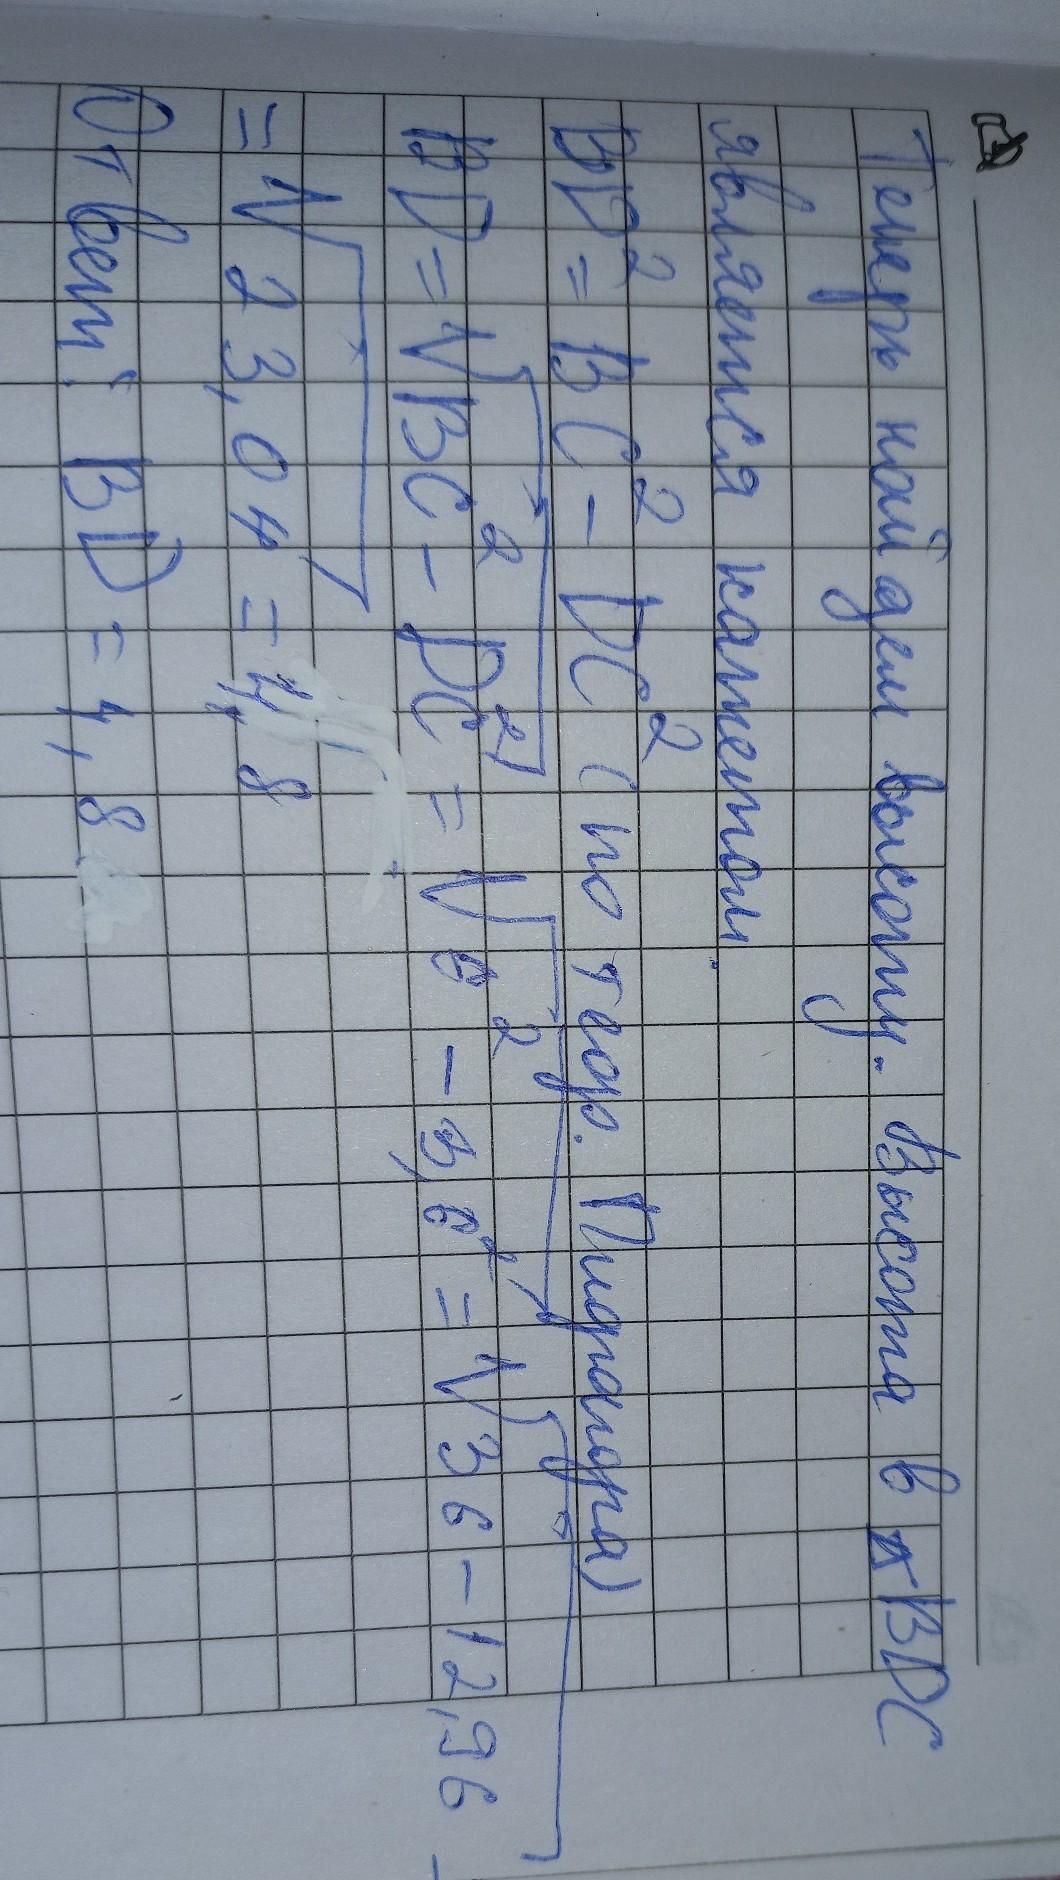 Теперь найдем высоту. Высота в △BDC
является катетом.
BD² = BC² - DC² (по теор. Пифагора)
BD = √BC² - DC² = √6² - 3,6² = √36 - 12,96 -
= √23,04 = 4,8
Ответ: BD = 4,8